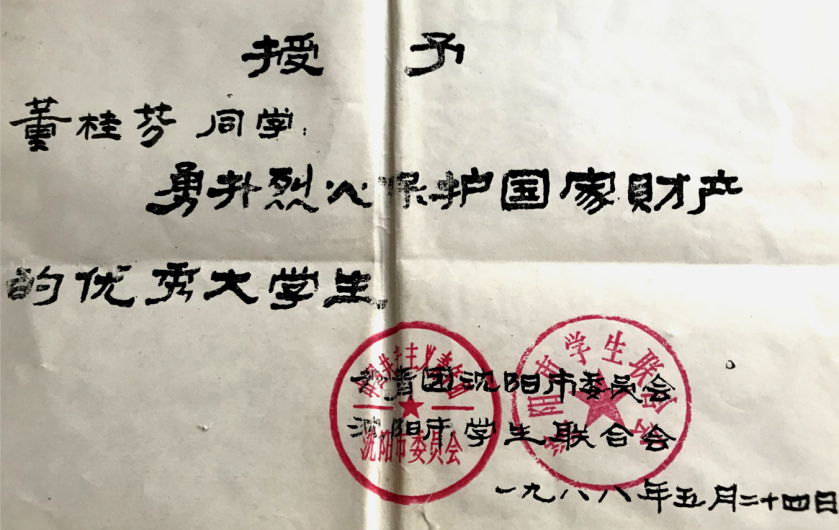 授予
董桂芬同学:
勇扑烈火保护国家财产
的优秀大学生
共青团沈阳市委员会
沈阳市学生联合会
一九八八年五月二十四日
沈阳市委员会